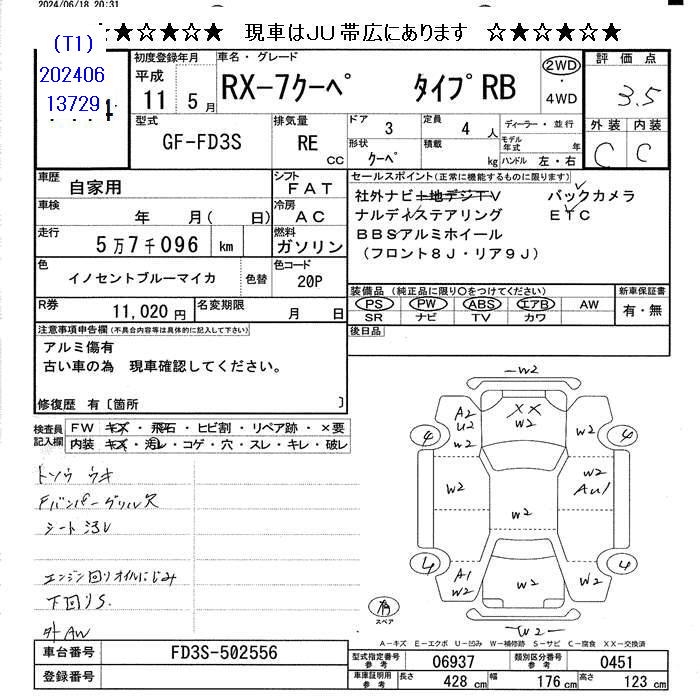 2024/06/18 20:31
★☆★☆★☆★ 現車はJU帯広にあります ☆★☆★☆★☆★
(T1)
202406
13729
初度登録年月
平成
11 5月
車名・グレード
RX-7クーペ タイプRB
2WD
・
4WD
評価点
3.5
外装 内装
C C
型式
GF-FD3S
排気量
RE
cc
ドア 3
定員 4 人
ディーラー・並行
形状 クーペ
積載 kg
モデル年式 年
ハンドル 左・右
車歴 自家用
シフト FAT
車検 年 月( 日)
冷房 AC
走行 5万7千096 km
燃料 ガソリン
色 イノセントブルーマイカ 色替
色コード 20P
R券 11,020円
名変期限 月 日
セールスポイント(正常に機能するものに限ります)
社外ナビ+地デジTV バックカメラ
ナルディステアリング ETC
BBSアルミホイール
(フロント8J・リア9J)
装備品 (純正品に限り○をつけてください)
新車保証書
PS PW ABS エアB AW
SR ナビ TV カワ
有・無
後日品
注意事項申告欄(不具合内容等は具体的に記入して下さい)
アルミ傷有
古い車の為 現車確認してください。
修復歴 有〔箇所 〕
検査員記入欄
FW キズ・飛石・ヒビ割・リペア跡・×要
内装 キズ・汚レ・コゲ・穴・スレ・キレ・破レ
トソウ ウキ
Fバンパーグリルス
シート汚レ
エンジン回りオイルにじみ
下回りS.
外AW
W2
A2
U2
W2
XX
W2
4
4
W2
W2
W2
AU1
W2
4
4
A1
W2
W2
W2
W2
有
スペア
A-キズ E-エクボ U-凹み W-補修跡 S-サビ C-腐食 XX-交換済
車台番号 FD3S-502556
登録番号
型式指定番号 参考 06937
類別区分番号 参考 0451
車庫証明用 参考 長さ 428 cm 幅 176 cm 高さ 123 cm